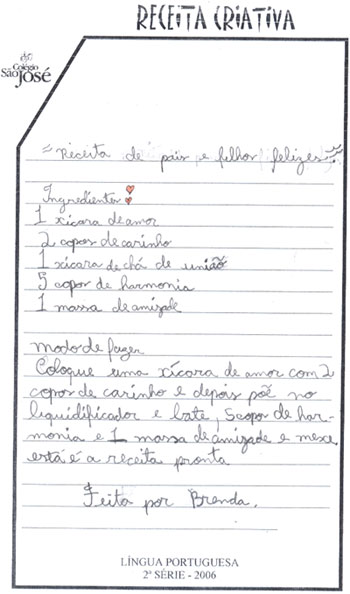 RECEITA CRIATIVA
Colégio
São José
"Receita de pais e filhos felizes"
Ingredientes
1 xícara de amor
2 copos de carinho
1 xícara de chá de união
5 copos de harmonia
1 massa de amizade
modo de fazer
Coloque uma xícara de amor com 2
copos de carinho e depois põe no
liquidificador e bate, 5 copos de har-
monia e 1 massa de amizade e mexe
está é a receita pronta
Feita por Brenda.
LÍNGUA PORTUGUESA
2ª SÉRIE - 2006